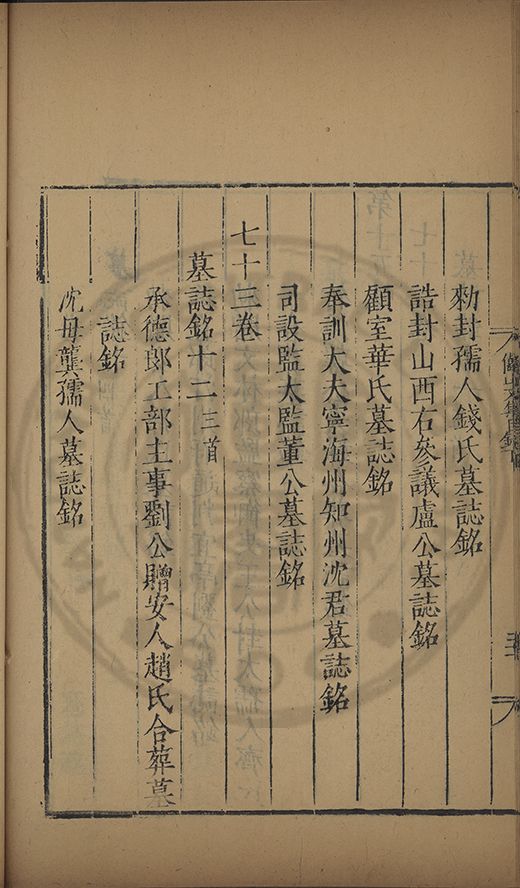 勑封孺人錢氏墓誌銘
誥封山西右參議盧公墓誌銘
顧室華氏墓誌銘
奉訓大夫寧海州知州沈君墓誌銘
司設監太監董公墓誌銘
七十三卷
墓誌銘十二三首
承德郎工部主事劉公贈安人趙氏合葬墓
誌銘
沈母龔孺人墓誌銘